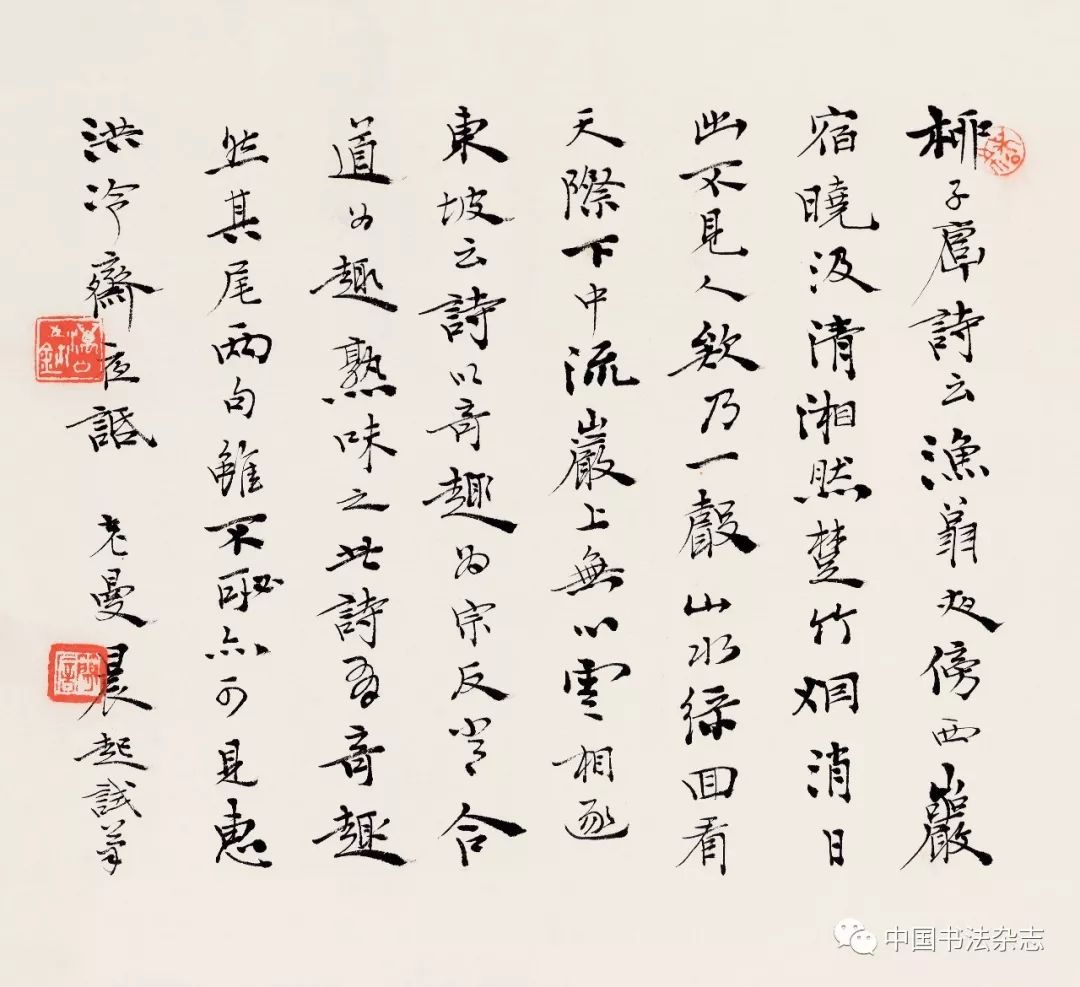 柳子厚詩云漁翁夜傍西巖
宿曉汲清湘然楚竹烟消日
出不見人欸乃一聲山水綠回看
天際下中流巖上無心雲相逐
東坡云詩以奇趣為宗反常合
道為趣熟味之此詩有奇趣
然其尾兩句雖不必亦可見惠
洪冷齋夜話 老曼晨起試筆
中国书法杂志